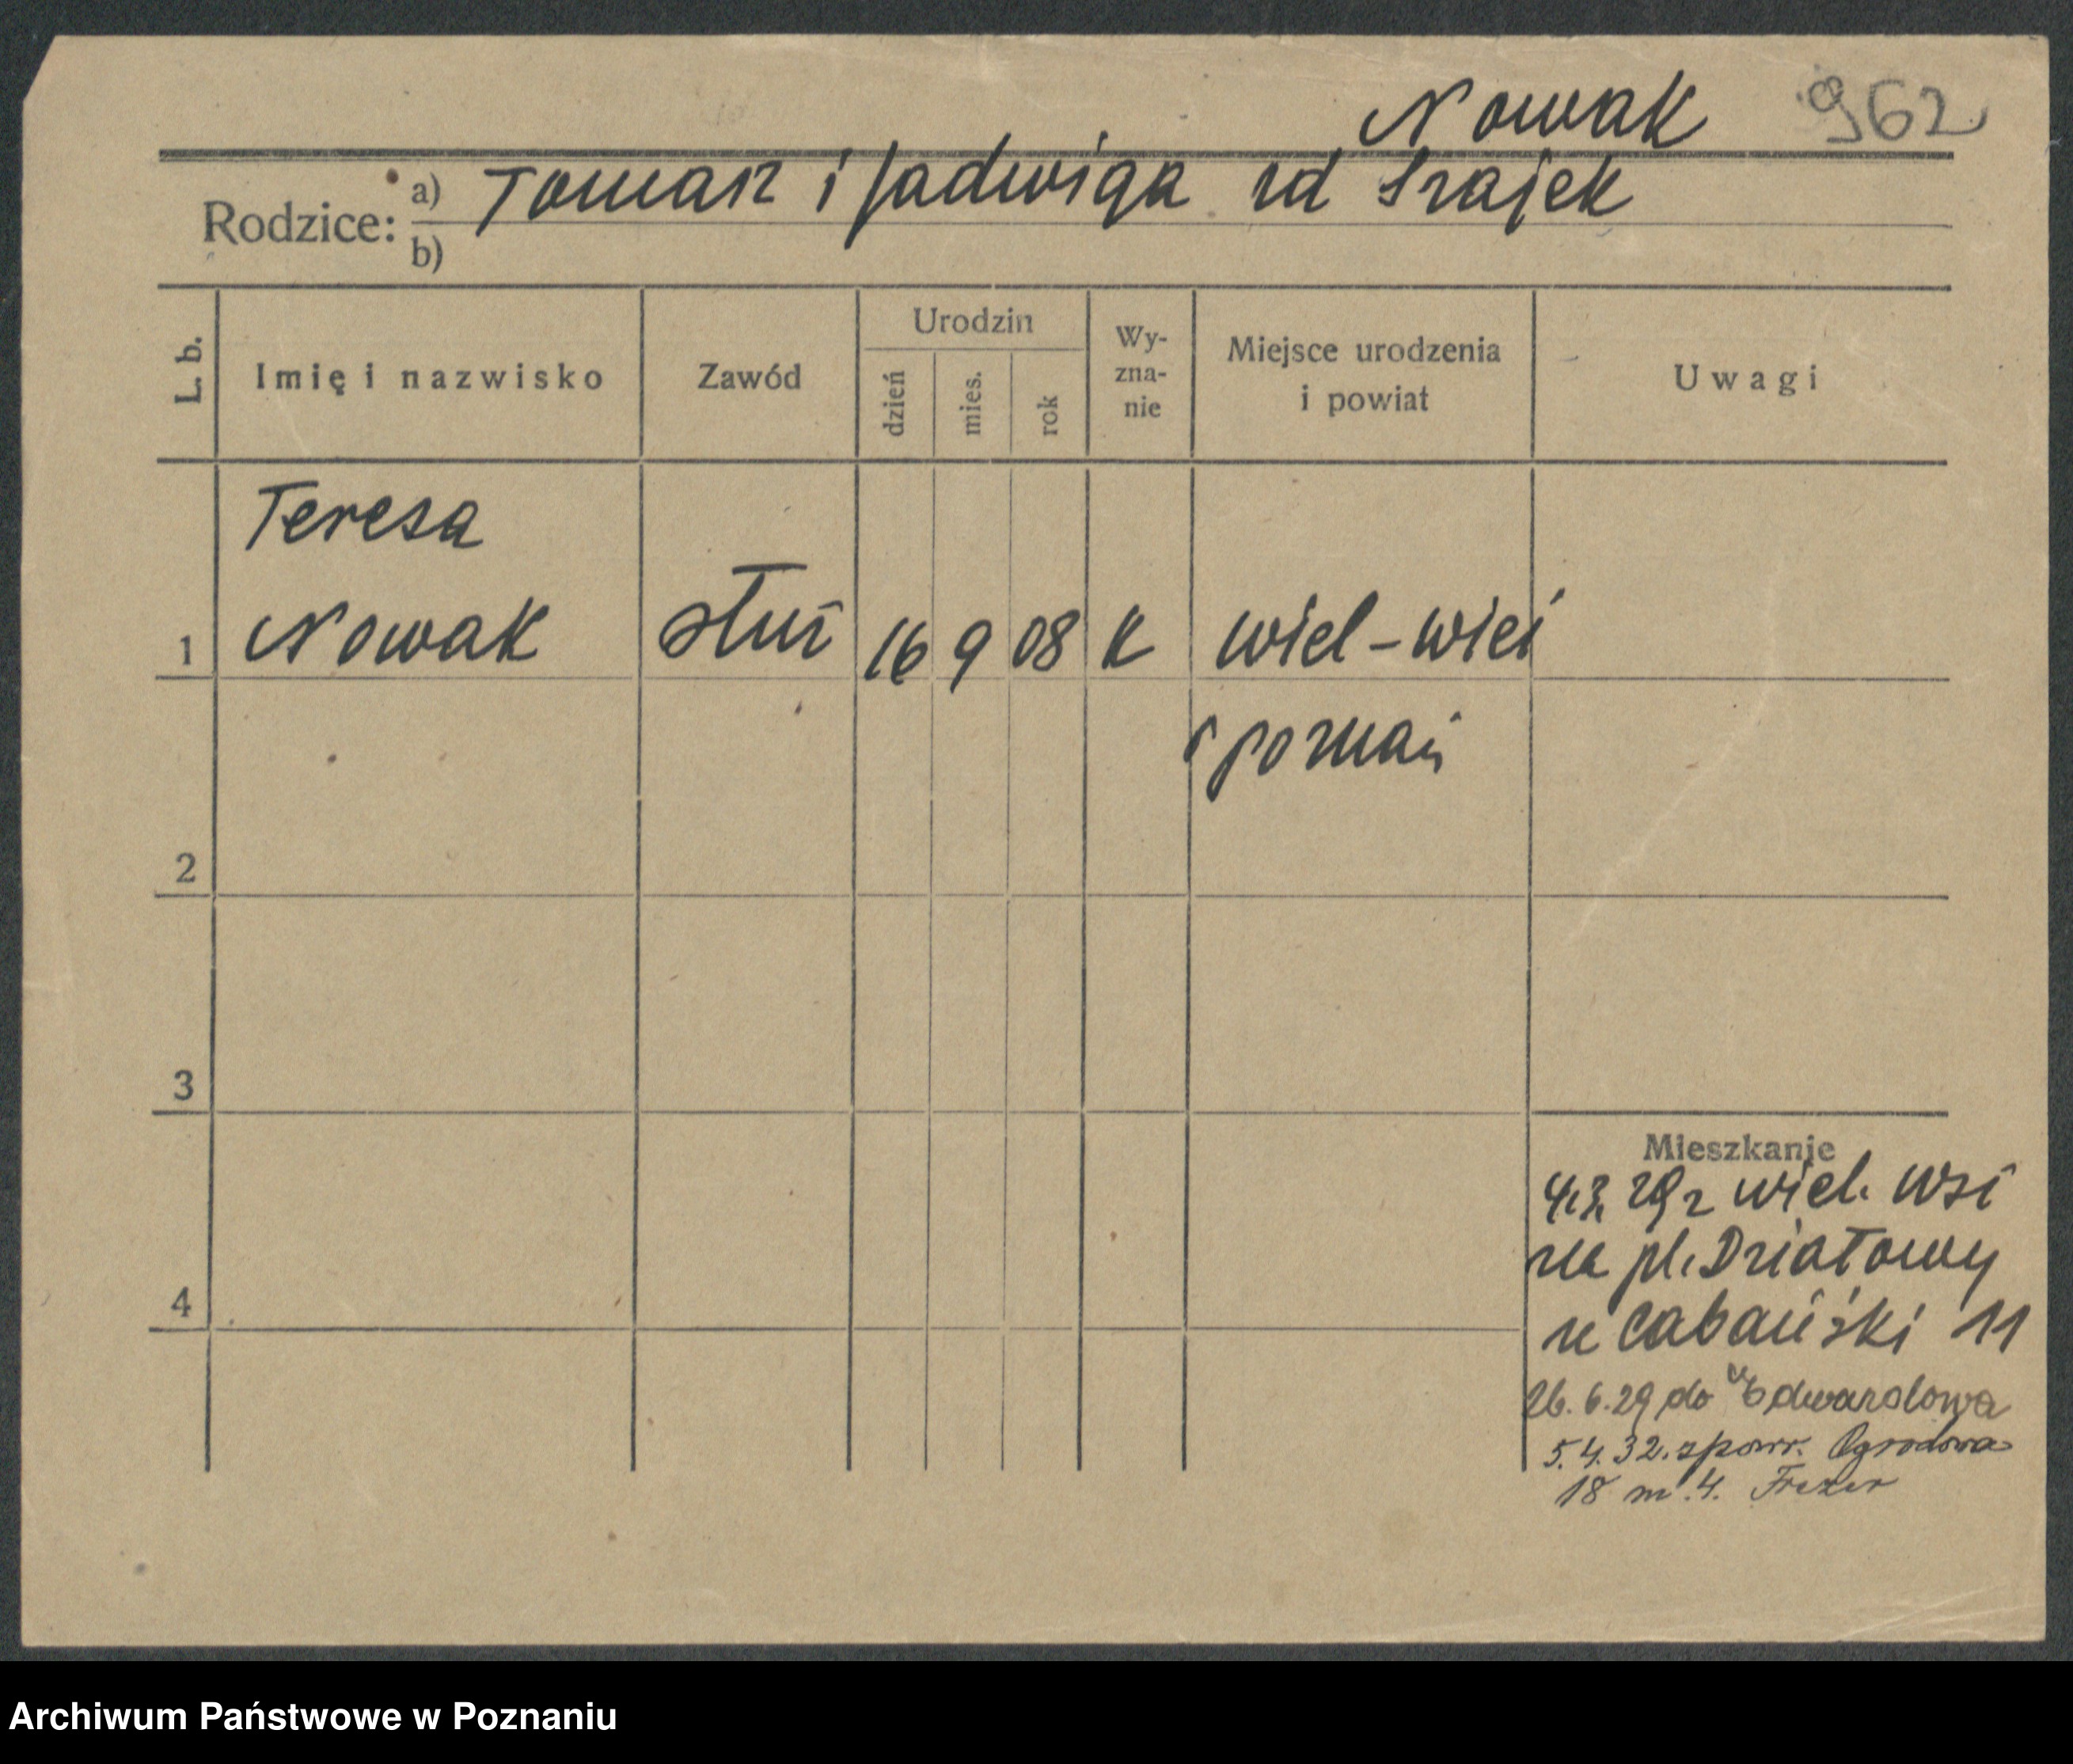 Nowak 962
Rodzice: a) Tomasz i Jadwiga zd Szajek
b)
L. b.
Imię i nazwisko
Zawód
Urodzin
dzień
mies.
rok
Wy-
zna-
nie
Miejsce urodzenia
i powiat
Uwagi
Teresa
1 Nowak służ 16 9 08 K wiel-wieś
p poznań
2
3
4
Mieszkanie
4.3. 29 z wiel. wsi
na pl. Działowy
u Cabański 11
26.6.29 do Edwardowa
5.4.32. spowr. Ogrodowa
18 m. 4.
Archiwum Państwowe w Poznaniu